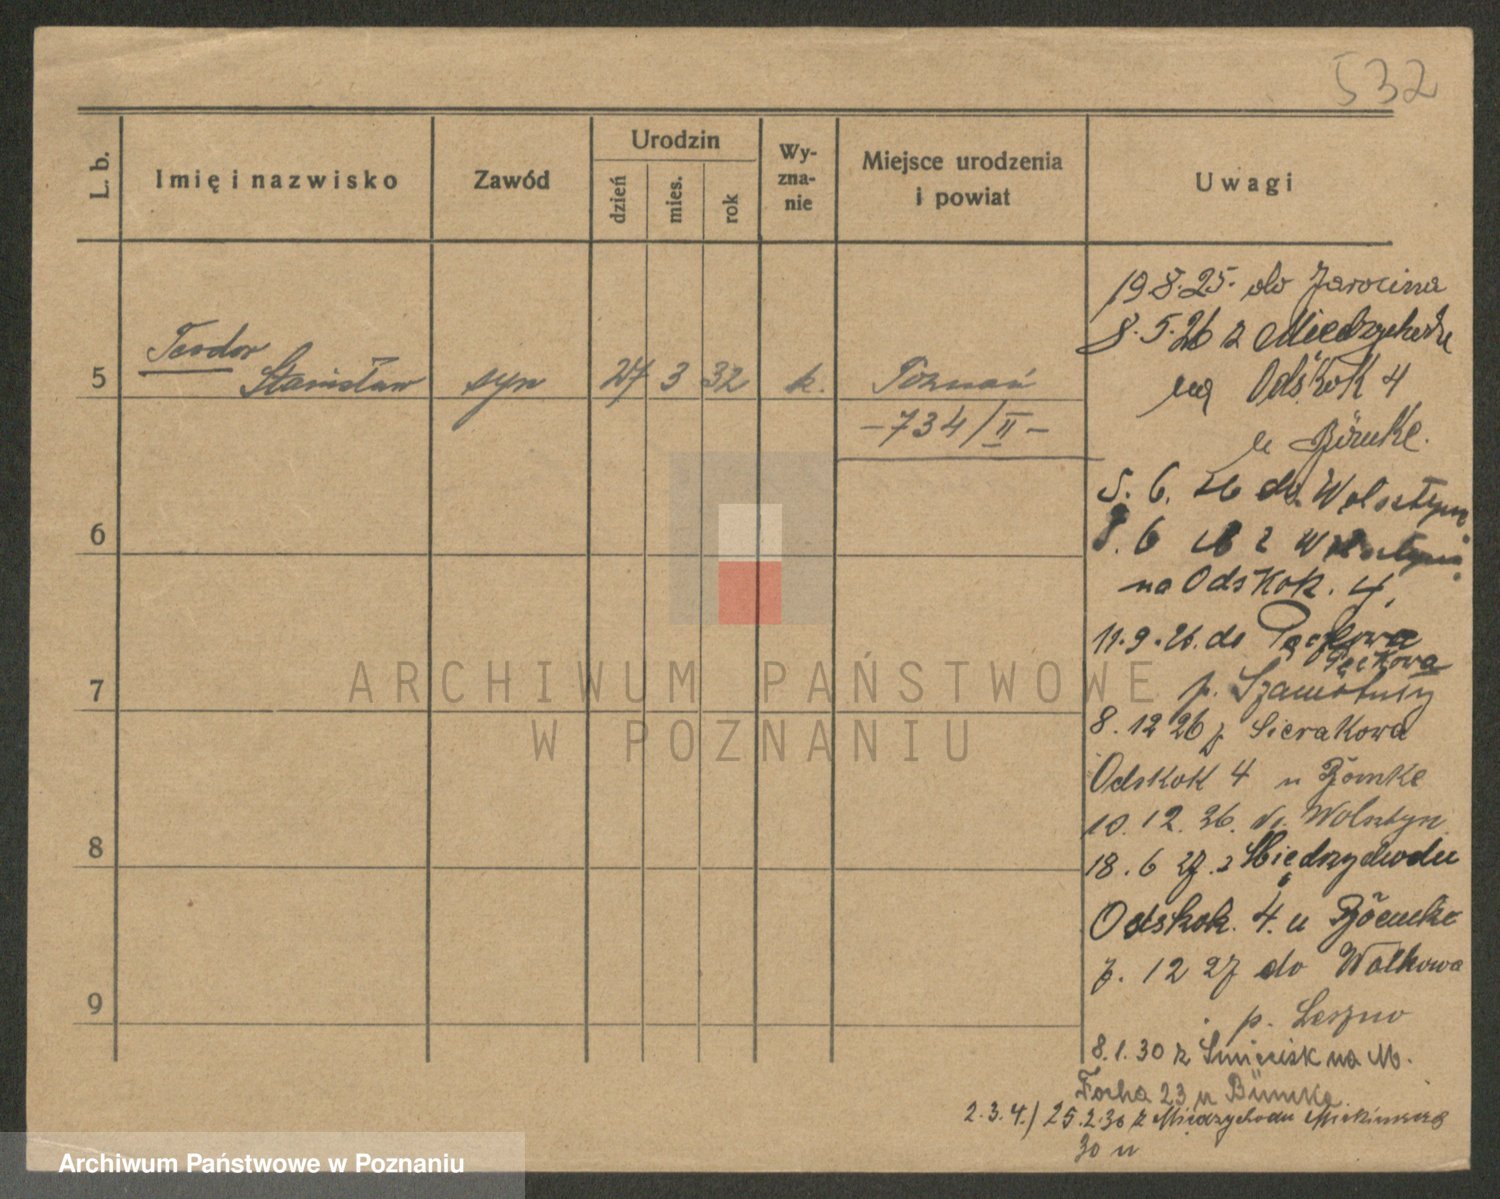 532
L. b.
Imię i nazwisko
Zawód
Urodzin
dzień
mies.
rok
Wy-
zna-
nie
Miejsce urodzenia
i powiat
Uwagi
5
Teodor
Stanisław
syn
27
3
32
k.
Poznań
-734/II-
6
7
8
9
19.8.25. do Jarocina
8.5.26 z Miedzychodu
na Odskok 4
u
5. 6. 26 do Wolsztyna
8. 6 26 z Wolsztyna
na Odskok. 4,
11.9.26. do
Pęckowa
p. Szamotuły
8. 12 26 z Sierakowa
Odskok 4 u
10. 12. 26. Wolsztyn
18. 6 27. z Międzychodu
Odskok. 4. u
7. 12 27 do Wolkowa
p. Leszno
8.1.30 z na M.
Focha 23 u
2.3.4./ 25.2.30 z Międzychodu
30 u
ARCHIWUM PAŃSTWOWE
W POZNANIU
Archiwum Państwowe w Poznaniu